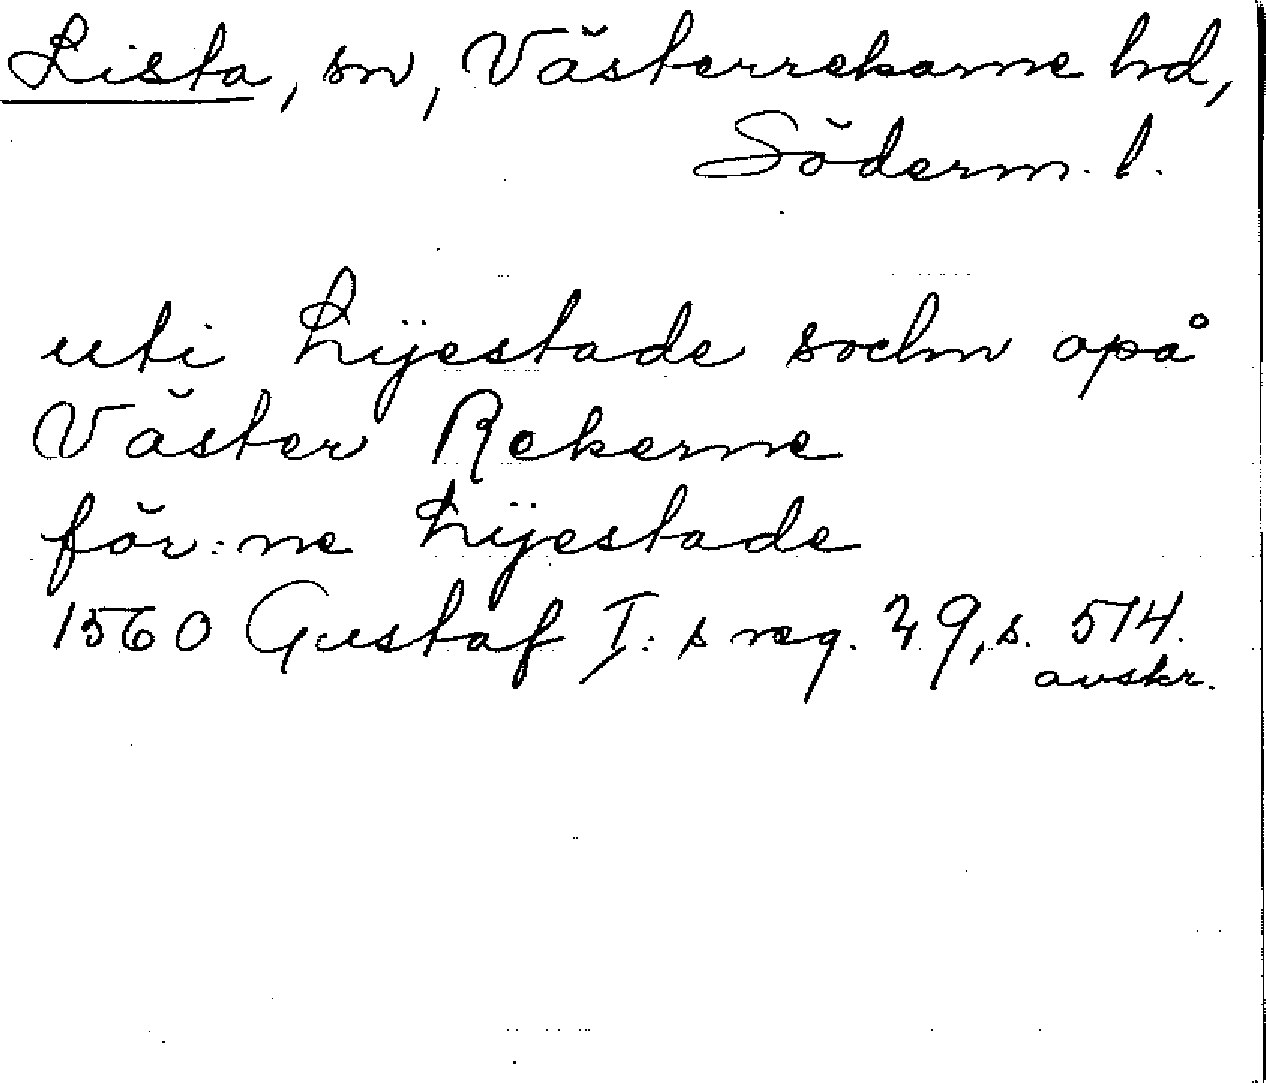 Lista, sn, Västerrekarne hd,
Söderm. l.
uti Lÿestade sochn opå
Väster Rekerne
för:ne Lÿestade
1560 Gustaf I:s reg. 29, s. 514.
avskr.